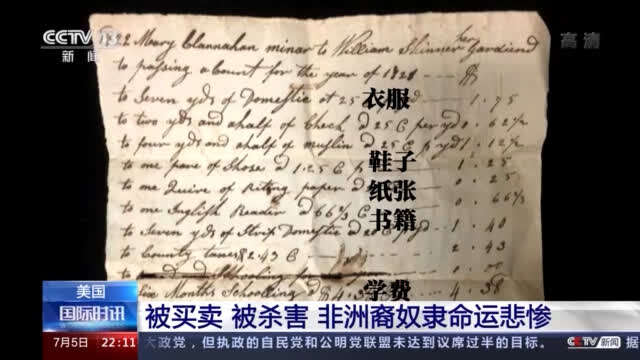 CCTV 13
新闻
高清
Mary Clannahan minor to William Skinner her Gardiend
to passing account for the year of 1828
to Seven yds of Domestic at 25
衣服
1.75
to two yds and ahalf of Check @ 25 C per yd 62½
to four yds and ahalf of muslin @ 25 C p yd 1.12½
to one pare of Shose @ 1.25 C
鞋子
1.25
to one Quire of Riting paper
纸张
0.25
to one Inglish Reader @ 66⅔ C
书籍
0.66⅔
to Seven yds of Strip Domestic @ 20 C p yd 1.40
to County taxes $2.43 C 2.43
Schooling
学费
five Months Schooling 4.38
美国
国际时讯
被买卖 被杀害 非洲裔奴隶命运悲惨
7月5日 22:11 大政党,但执政的自民党和公明党联盟未达到议席过半的目标。 ▶首
CCTV 新闻